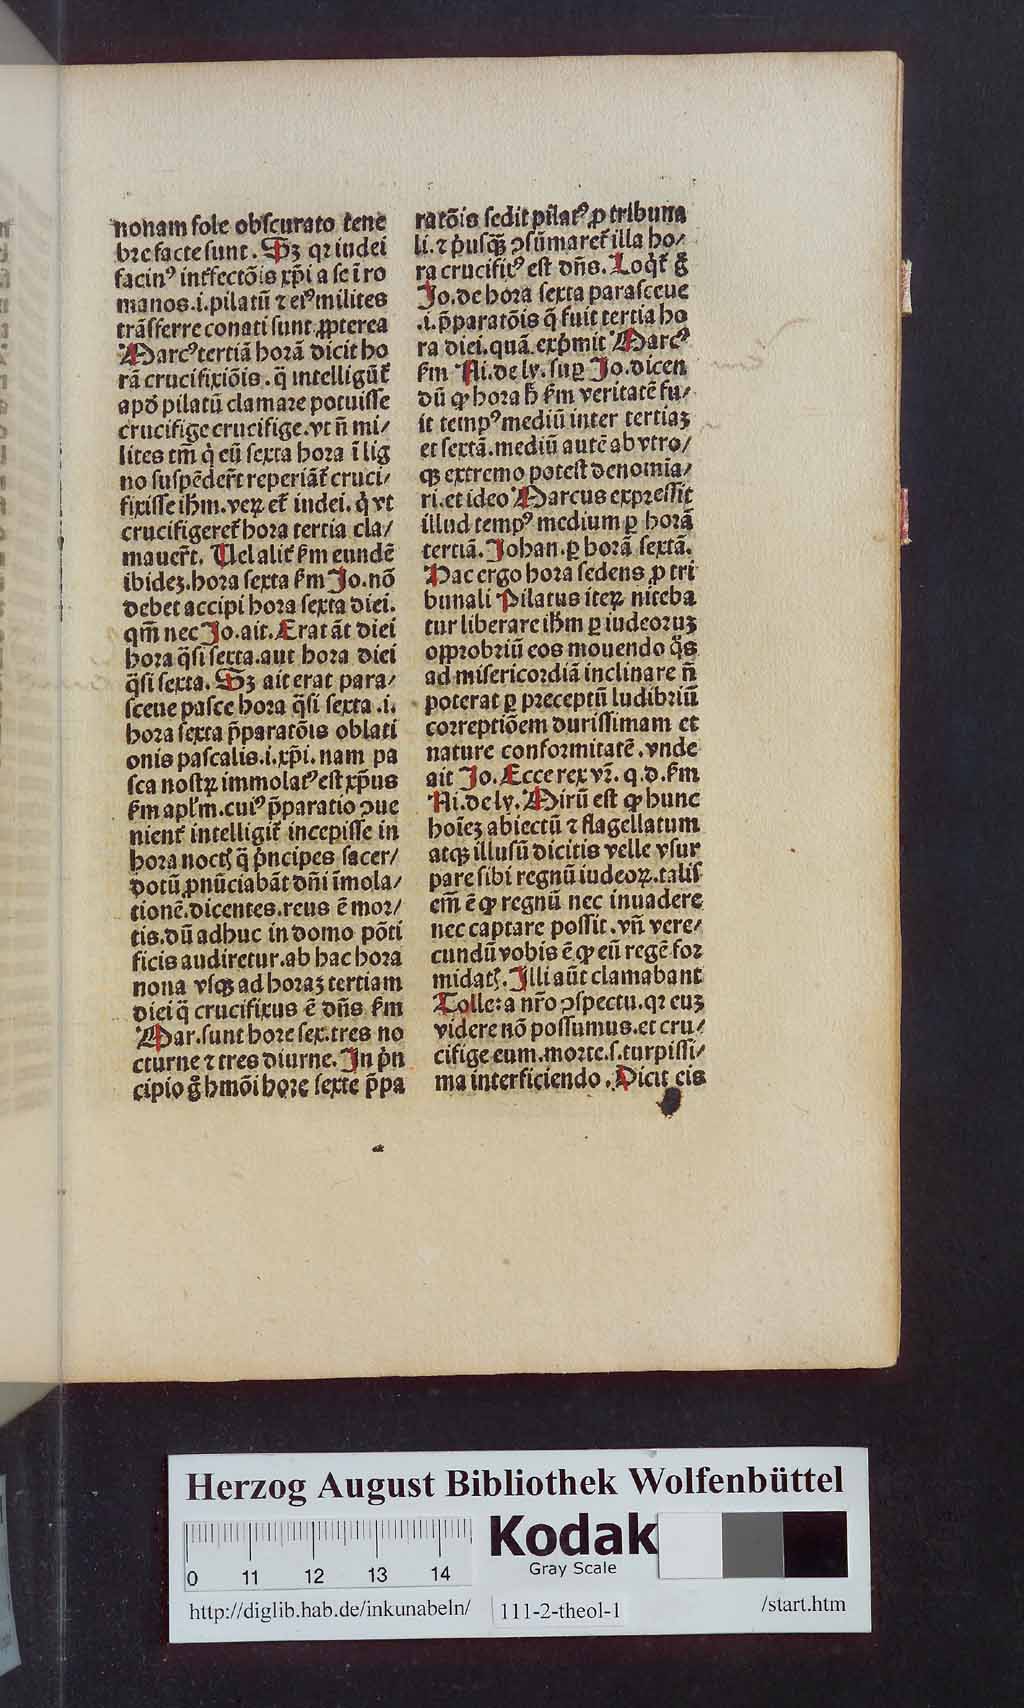 nonam sole obscurato tene
bre facte sunt. Sꝫ qꝛ iudei
facinꝰ int̄fectōis xp̄i a se ī ro
manos .i. pilatū ⁊ eiꝰ milites
trāsferre conati sunt ꝓpterea
Marcꝰ tertiā horā dicit ho
rā crucifixiōis. q̄ intelligūt᷑
apd̓ pilatū clamare potuisse
crucifige crucifige. vt n̄ mi/
lites tm̄ q̇ eū sexta hora ī lig
no suspēder̄t reperiāt᷑ cruci/
fixisse ih̄m. veꝝ et᷑ iudei. q̇ vt
crucifigeret᷑ hora tertia cla/
mauer̄t. Uel alit᷑ ẜm eundē
ibideꝫ. hora sexta ẜm Jo. nō
debet accipi hora sexta diei.
qm̄ nec Jo. ait. Erat āt diei
hora q̄si sexta. aut hora diei
q̄si sexta. Sꝫ ait erat para/
sceue pasce hora q̄si sexta .i.
hora sexta p̄paratōis oblati
onis pascalis .i. xp̄i. nam pa
sca nostꝝ immolatꝰ est xp̄us
ẜm apl̄m. cuiꝰ p̄paratio ꝯue
nient᷑ intelligit᷑ incepisse in
hora noctꝭ q̄ pͥncipes sacer/
dotū ꝓnūciabāt dn̄i īmola/
tionē. dicentes. reus ē mor/
tis. dū adhuc in domo pōti
ficis audiretur. ab hac hora
nona vsqꝫ ad horaꝫ tertiam
diei q̄ crucifixus ē dn̄s ẜm
Mar. sunt hore sex. tres no
cturne ⁊ tres diurne. In pͥn
cipio g̊ hmōi hore sexte p̄pa
ratōis sedit pilatꝰ ꝓ tribuna
li. ⁊ pͥusqꝫ̄ ꝯsūmaret᷑ illa ho/
ra crucifixꝰ est dn̄s. Loqͥt᷑ g̊
Jo. de hora sexta parasceue
.i. p̄paratōis q̄ fuit tertia ho
ra diei. quā expͥmit Marcꝰ
ẜm Ni. de ly. suꝑ Jo. dicen
dū ꝙ hora h̄ ẜm veritatē fu/
it tempꝰ mediū inter tertiaꝫ
et sextā. mediū autē ab vtro/
qꝫ extremo potest denomīa/
ri. et ideo Marcus expressit
illud tempꝰ medium ꝑ horā
tertiā. Johan. ꝑ horā sextā.
Hac ergo hora sedens ꝓ tri
bunali Pilatus iteꝝ niteba
tur liberare ih̄m ꝑ iudeoruꝫ
opprobriū eos mouendo q̊s
ad misericordiā inclinare n̄
poterat ꝑ preceptū ludibriū
correptiōem durissimam et
nature conformitatē. vnde
ait Jo. Ecce rex vr̄. q. d. ẜm
Ni. de ly. Mirū est ꝙ hunc
hoīeꝫ abiectū ⁊ flagellatum
atqꝫ illusū dicitis velle vsur
pare sibi regnū iudeoꝝ. talis
em̄ ē ꝙ regnū nec inuadere
nec captare possit. vn̄ vere/
cundū vobis ē ꝙ eū regē for
midatꝭ. Illi aūt clamabant
Tolle: a nr̄o ꝯspectu. qꝛ euꝫ
videre nō possumus. et cru/
cifige eum. morte .s. turpissi/
ma interficiendo. Dicit eis
Herzog August Bibliothek Wolfenbüttel
0 11 12 13 14
Kodak
Gray Scale
http://diglib.hab.de/inkunabeln/ 111-2-theol-1 /start.htm